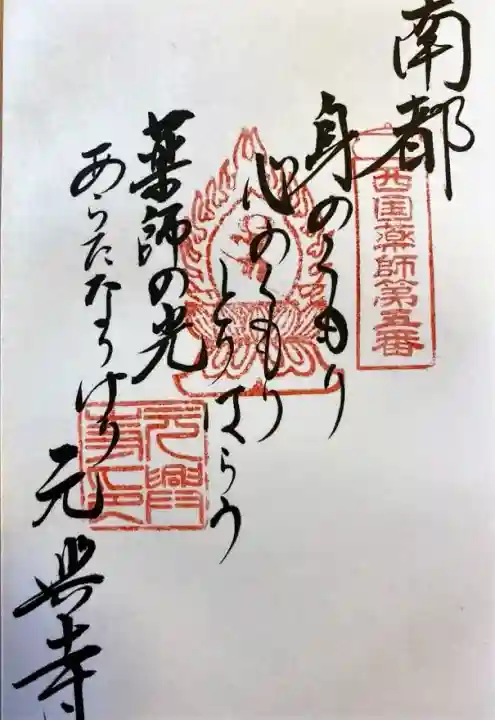 南都
西国薬師第五番
身のくもり
心のくもり
とりはらう
薬師の光
あらたなりけり
元興寺
元興
寺印